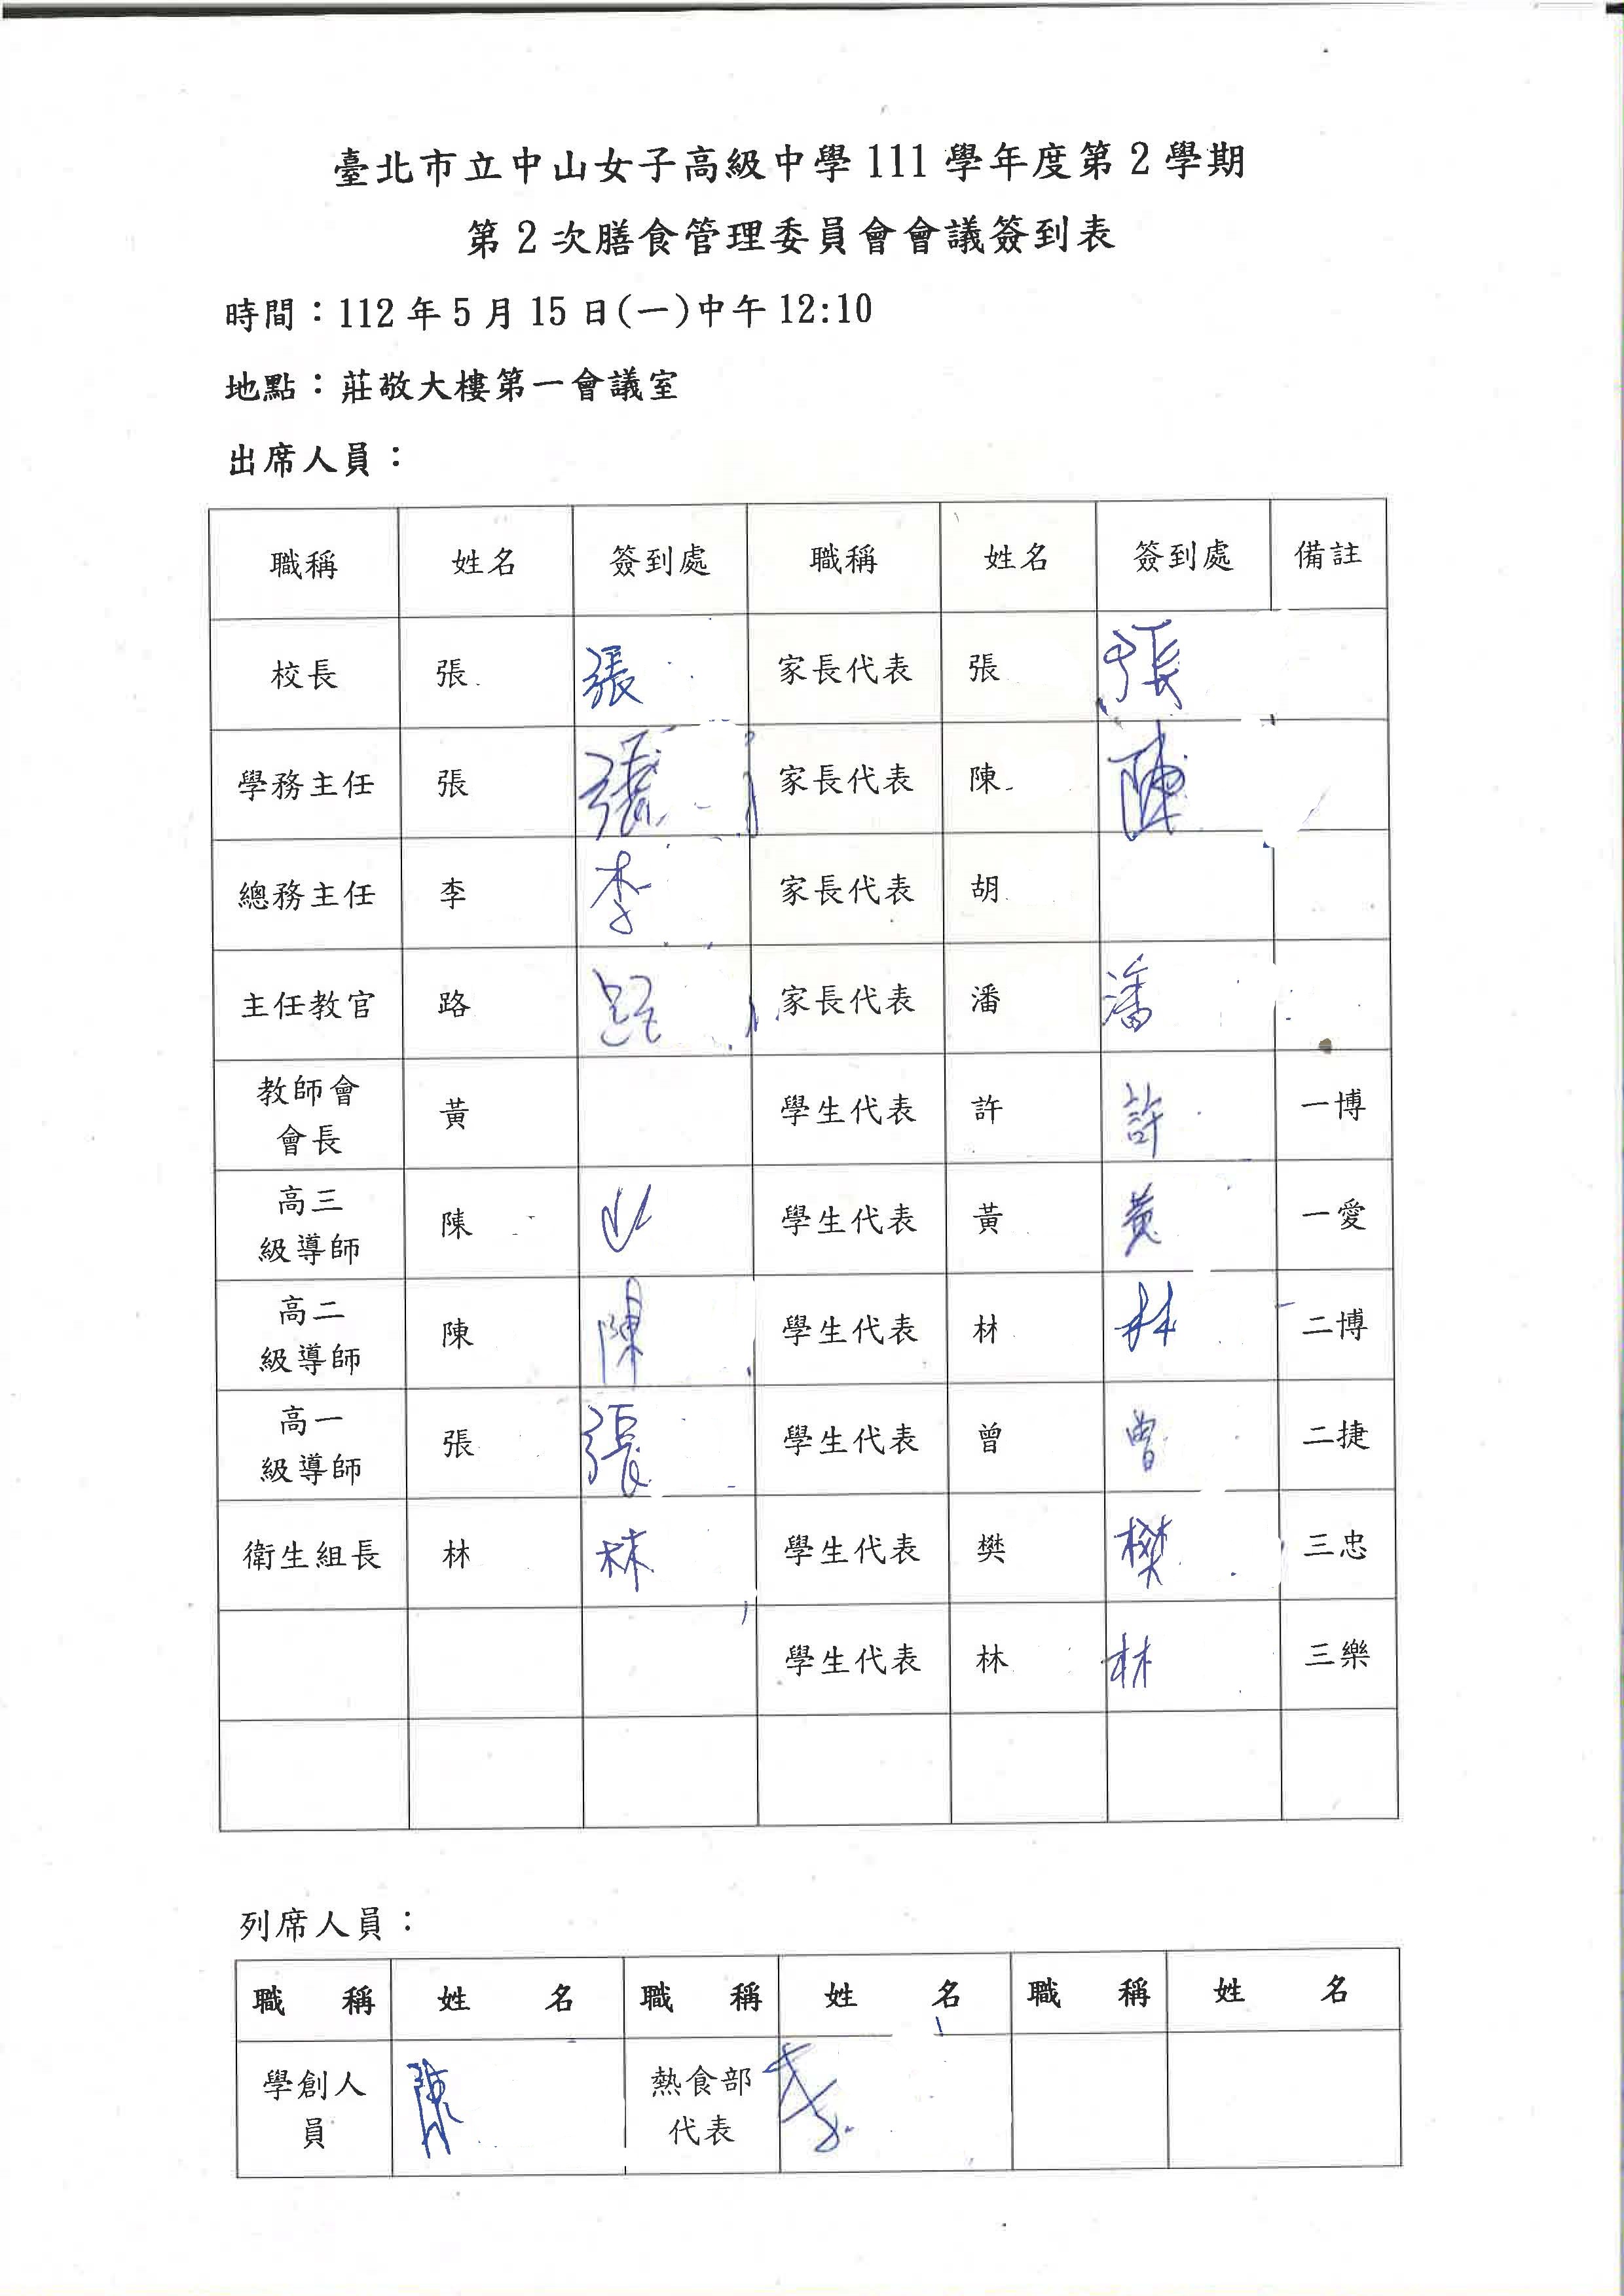 臺北市立中山女子高級中學111學年度第2學期
第2次膳食管理委員會會議簽到表
時間：112年5月15日(一)中午12:10
地點：莊敬大樓第一會議室
出席人員：
職稱 姓名 簽到處 職稱 姓名 簽到處 備註
校長 張 張 家長代表 張 張
學務主任 張 張 家長代表 陳 陳
總務主任 李 李 家長代表 胡
主任教官 路 路 家長代表 潘 潘
教師會
會長 黃 學生代表 許 許 一博
高三
級導師 陳 學生代表 黃 黃 一愛
高二
級導師 陳 陳 學生代表 林 林 二博
高一
級導師 張 張 學生代表 曾 曾 二捷
衛生組長 林 林 學生代表 樊 樊 三忠
學生代表 林 林 三樂
列席人員：
職稱 姓名 職稱 姓名 職稱 姓名
學創人
員 陳 熱食部
代表 李